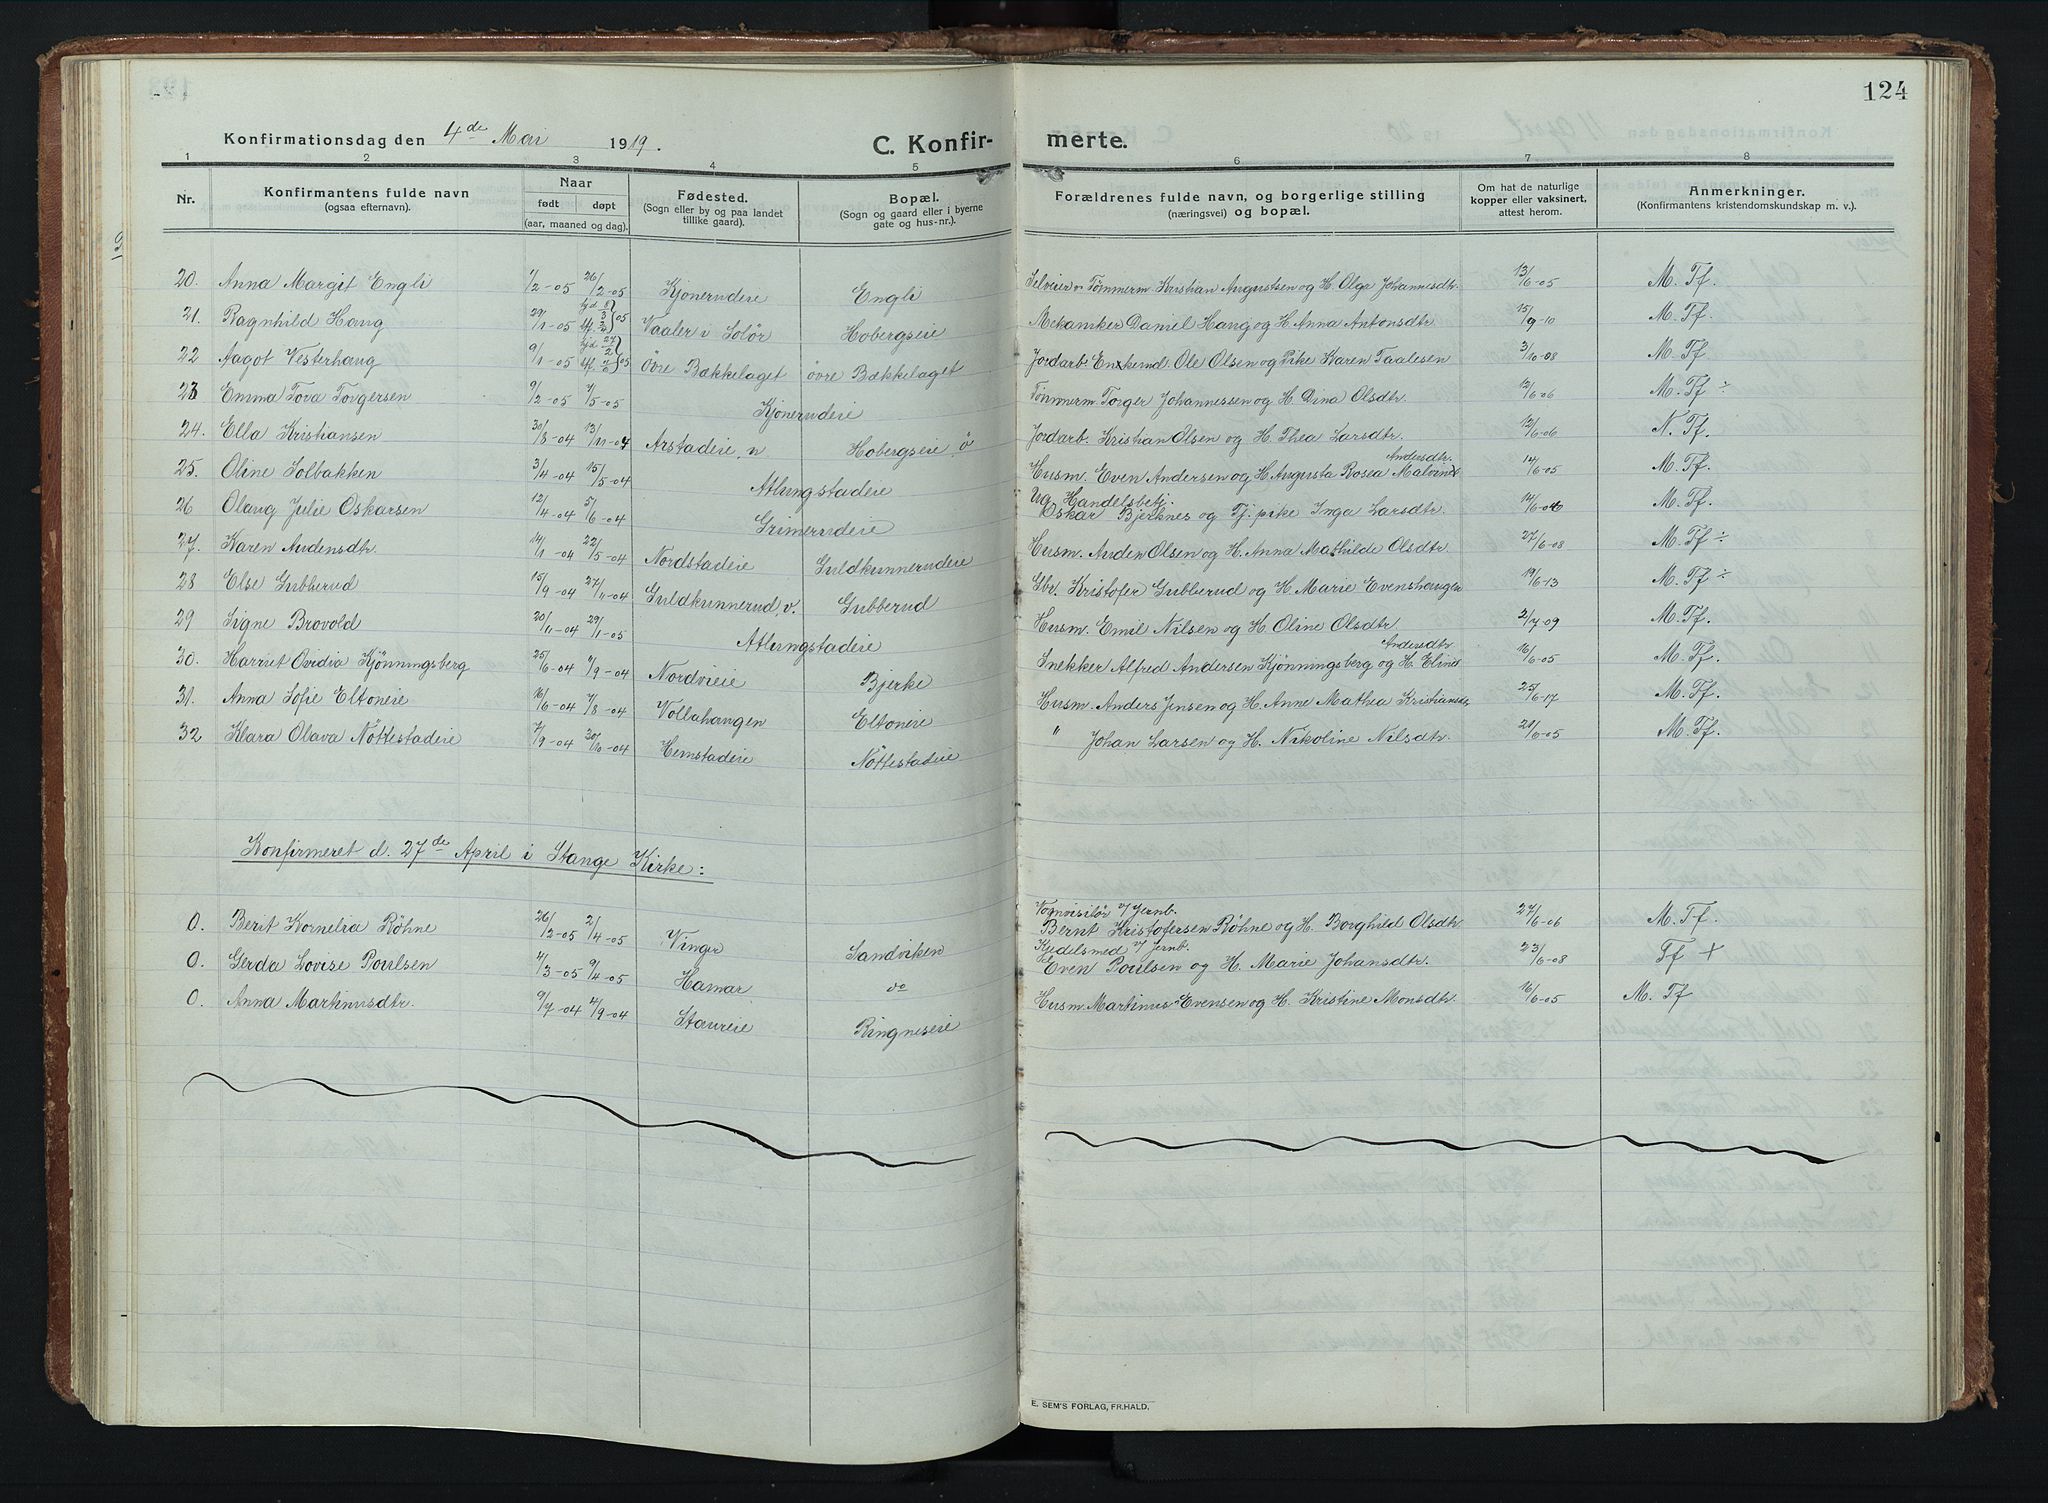 124
Konfirmationsdag den 4de Mai 1919.
C. Konfirmerte.
1 2 3 4 5 6 7 8
Nr. Konfirmantens fulde navn (ogsaa efternavn). Naar født døpt (aar, maaned og dag). Fødested. (Sogn eller by og paa landet tillike gaard). Bopæl. (Sogn og gaard eller i byerne gate og hus-nr.). Forældrenes fulde navn, og borgerlige stilling (næringsvei) og bopæl. Om hat de naturlige kopper eller vaksinert, attest herom. Anmerkninger. (Konfirmantens kristendomskundskap m. v.).
20. Anna Margit Engli 1/2-05 26/2-05 Kjonerudeie Engli Selveier og Tømmerm. Kristian Augustsen og H. Olga Johannesdtr. 13/6-05 M. Tf.
21. Ragnhild Haug 29/1-05 Vaaler i Solör Hobergseie Mekaniker Daniel Haug og H. Anna Antonsdtr 15/9-10 M. Tf.
22 Aagot Vesterhaug 9/1-05 övre Bækkelaget övre Bækkelaget Jordarb. Enkemd. Ole Olsen og Pike Karen Taalesen 3/10-08 M. Tf.
23 Emma Tova Torgersen 9/2-05 7/5-05 Kjonerudeie Tömmerm. Torger Johannessen og H. Dina Olsdtr. 12/6-06 M. Tf ÷
24. Ella Kristiansen 30/8-04 13/11-04 Arstadeie, n Hobergseie ö Jordarb. Kristian Olsen og H. Thea Larsdtr. 12/6-06 N. Tf.
25. Oline Solbakken 3/4-04 15/5-04 Atlungstadeie Husm. Even Andersen og H. Augusta Rosea Malvine Andersdtr. 14/6-05 M. Tf.
26 Olaug Julie Oskarsen 12/4-04 5/6-04 Grimerudeie Ug. Handelsbetj. Oskar Bjerknes og Tj. pike Inga Larsdtr. 14/6-06 M. Tf.
27. Karen Audensdtr. 14/1-04 22/5-04 Nordstadeie Guldkunnerudeie Husm. Auden Olsen og H. Anna Mathilde Olsdtr 27/6-08 M. Tf ÷
28 Else Gubberud 15/9-04 27/11-04 Guldkunnerud v. Gubberud Gbr. Kristofer Gubberud og H. Marie Evenshaugen 19/6-13 M. Tf ÷
29 Signe Brovold 20/11-04 29/1-05 Atlungstadeie Husm. Emil Nilsen og H. Oline Olsdtr. 2/7-09 M. Tf.
30. Harriet Ovidia Kjönningsberg 25/6-04 /9-04 Nordvieie Bjerke Snekker Alfred Andersen Kjönningsberg og H. Eline Andersdtr 16/6-05 M. Tf.
31. Anna Sofie Eltoneie 16/6-04 7/8-04 Vollahaugen Eltoneie Husm. Anders Jensen og H. Anne Mathea Kristiansdr. 25/6-17 M. Tf.
32 Klara Olava Nöttestadeie 7/9-04 30/10-04 Hemstadeie Nöttestadeie " Johan Larsen og H. Nikoline Nilsdtr. 21/6-05 M. Tf.
Konfirmeret d. 27de April i Stange Kirke:
0. Berit Kornelia Röhne 26/2-05 2/4-05 Vinger Sandviken Vognvisitör v/ Jernb. Bernt Kristofersen Röhne og H. Borghild Olsdtr. 27/6-06 M. Tf.
0. Gerda Lovise Poulsen 4/3-05 9/4-05 Hamar do Kjedelsmed v/ Jernb. Even Poulsen og H. Marie Johansdtr. 23/6-08 Tf +
0. Anna Martinusdtr. 9/7-04 4/9-04 Staureie Ringneseie Husm. Martinus Evensen og H. Kristine Monsdtr. 16/6-05 M. Tf
E. SEM'S FORLAG, FR.HALD.